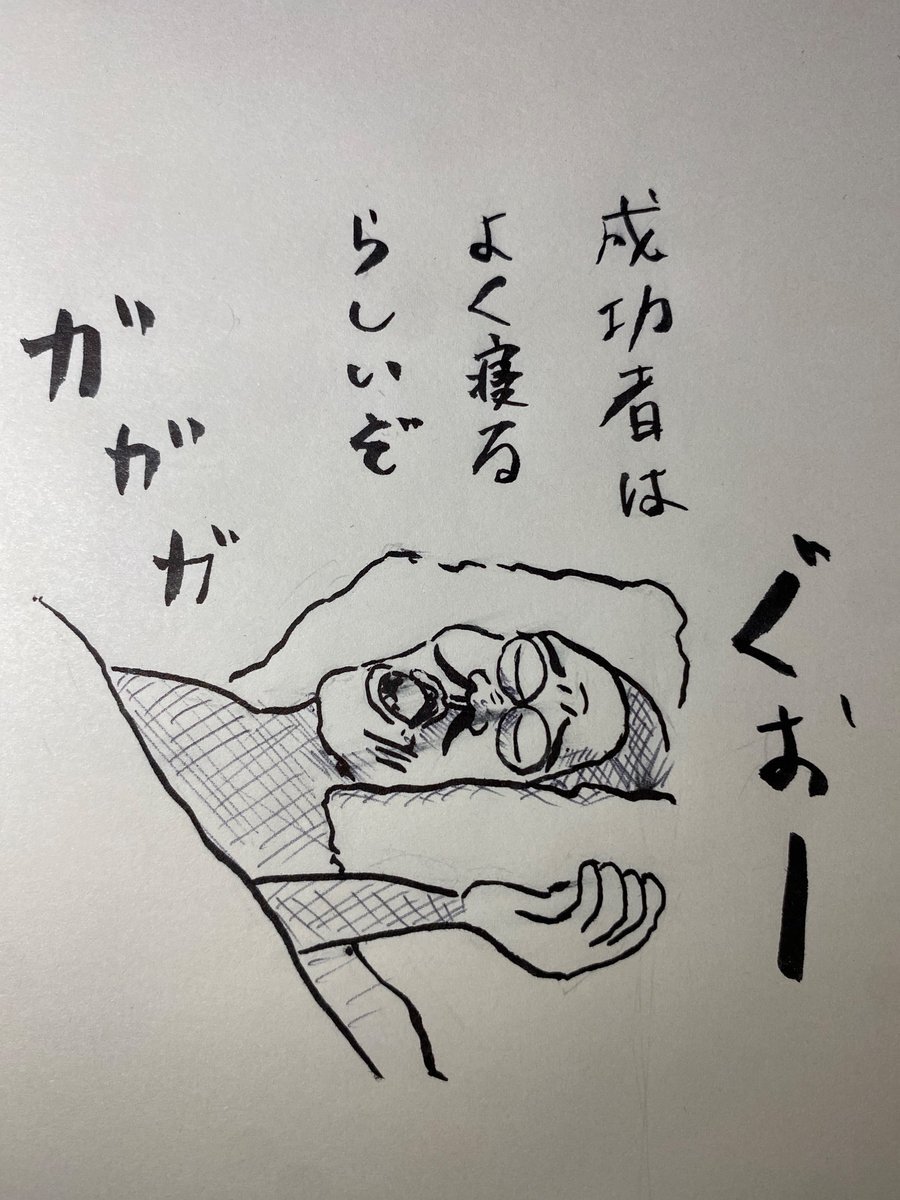 成功者は
よく寝る
らしいぞ
ぐおー
ガガガ